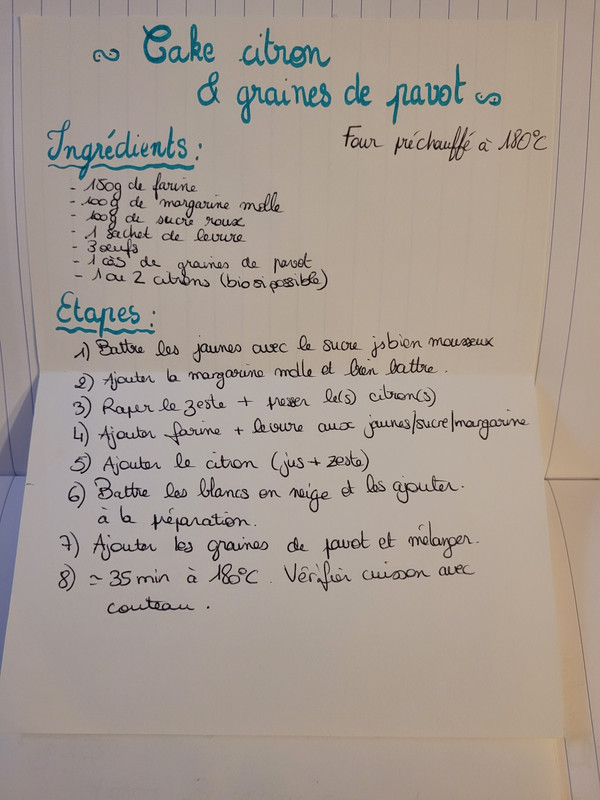 ~ Cake citron
& graines de pavot ~
Four préchauffé à 180°C
Ingrédients :
- 150g de farine
- 100g de margarine molle
- 100g de sucre roux
- 1 sachet de levure
- 3 œufs
- 1 càs de graines de pavot
- 1 ou 2 citrons (bio si possible)
Etapes :
1) Battre les jaunes avec le sucre jsbien mousseux
2) Ajouter la margarine molle et bien battre.
3) Raper le zeste + presser le(s) citron(s)
4) Ajouter farine + levure aux jaunes/sucre/margarine
5) Ajouter le citron (jus + zeste)
6) Battre les blancs en neige et les ajouter.
à la préparation.
7) Ajouter les graines de pavot et mélanger.
8) ≃ 35 min à 180°C. Vérifier cuisson avec
couteau.